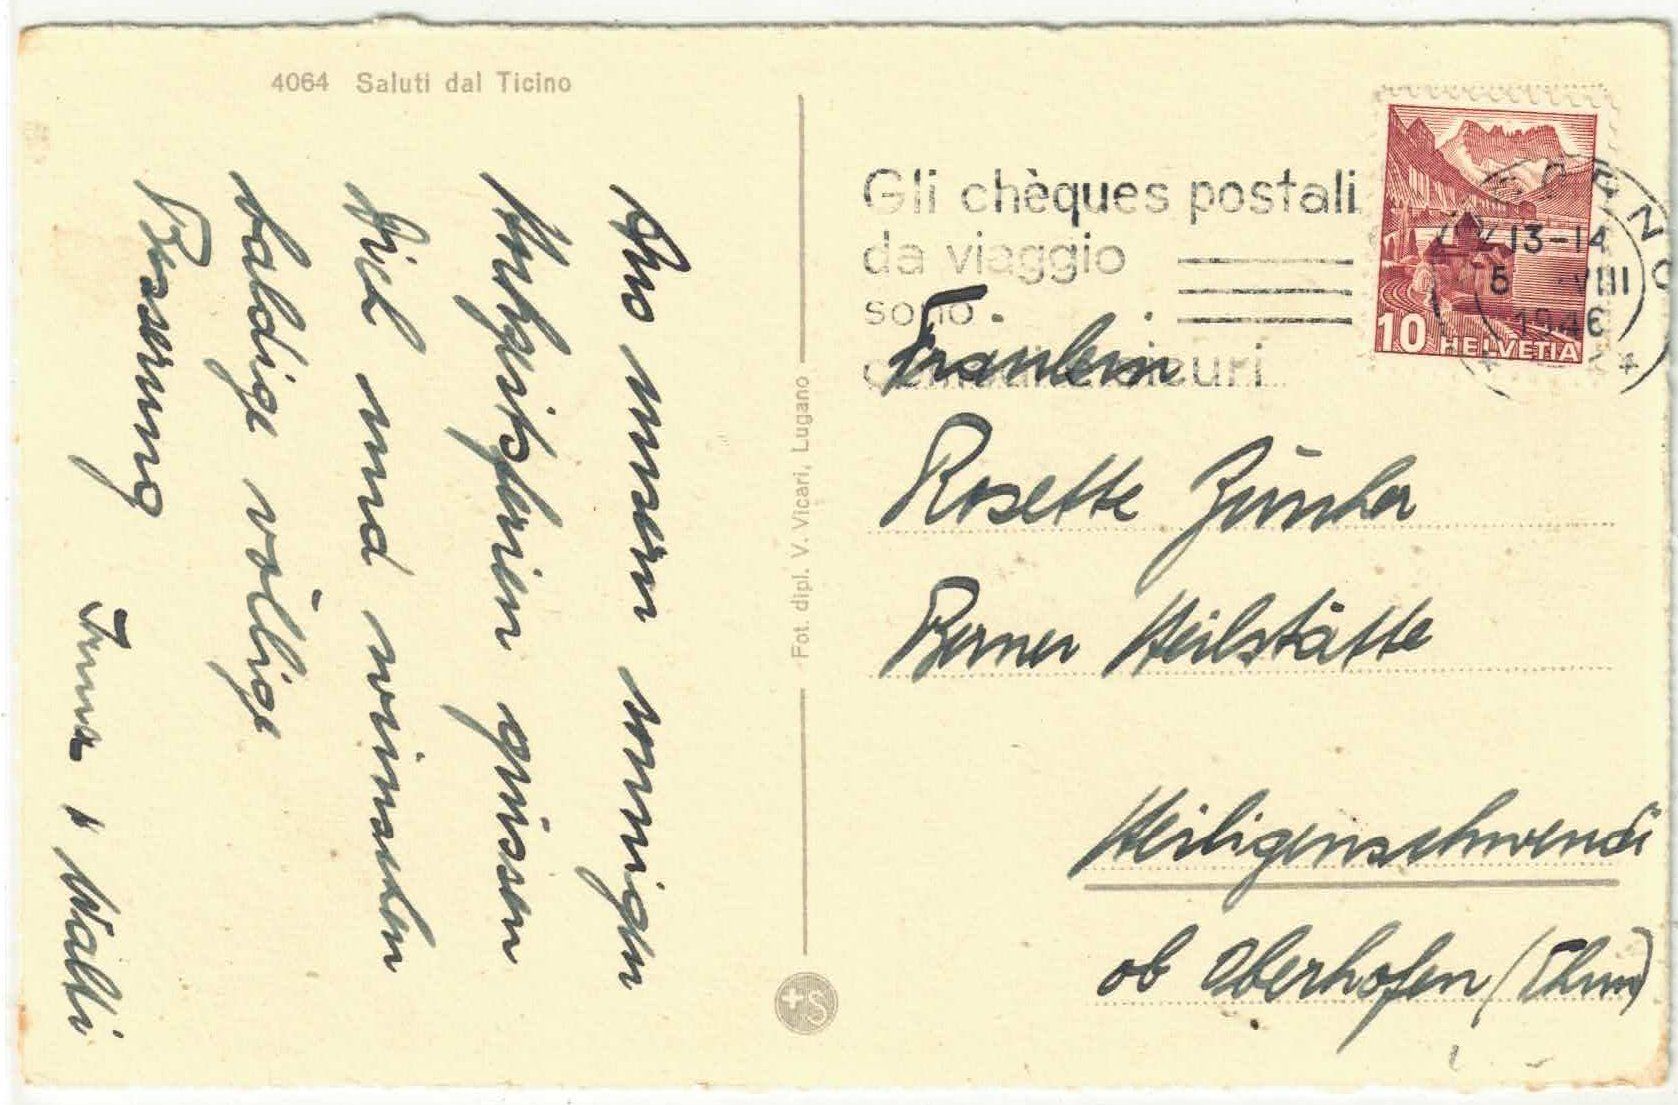 4064 Saluti dal Ticino
Aus unsern sonnigen
Hochzeitsferien grüssen
Dich und wünschen
baldige völlige
Besserung
Walti
Fot. dipl. V. Vicari, Lugano
+S
Gli chèques postali
da viaggio
sono
sicuri
13-14
5 VIII
1946
10 HELVETIA
Fräulein
Rosette
Berner Heilstätte
Heiligenschwendi
ob Oberhofen (Thun)